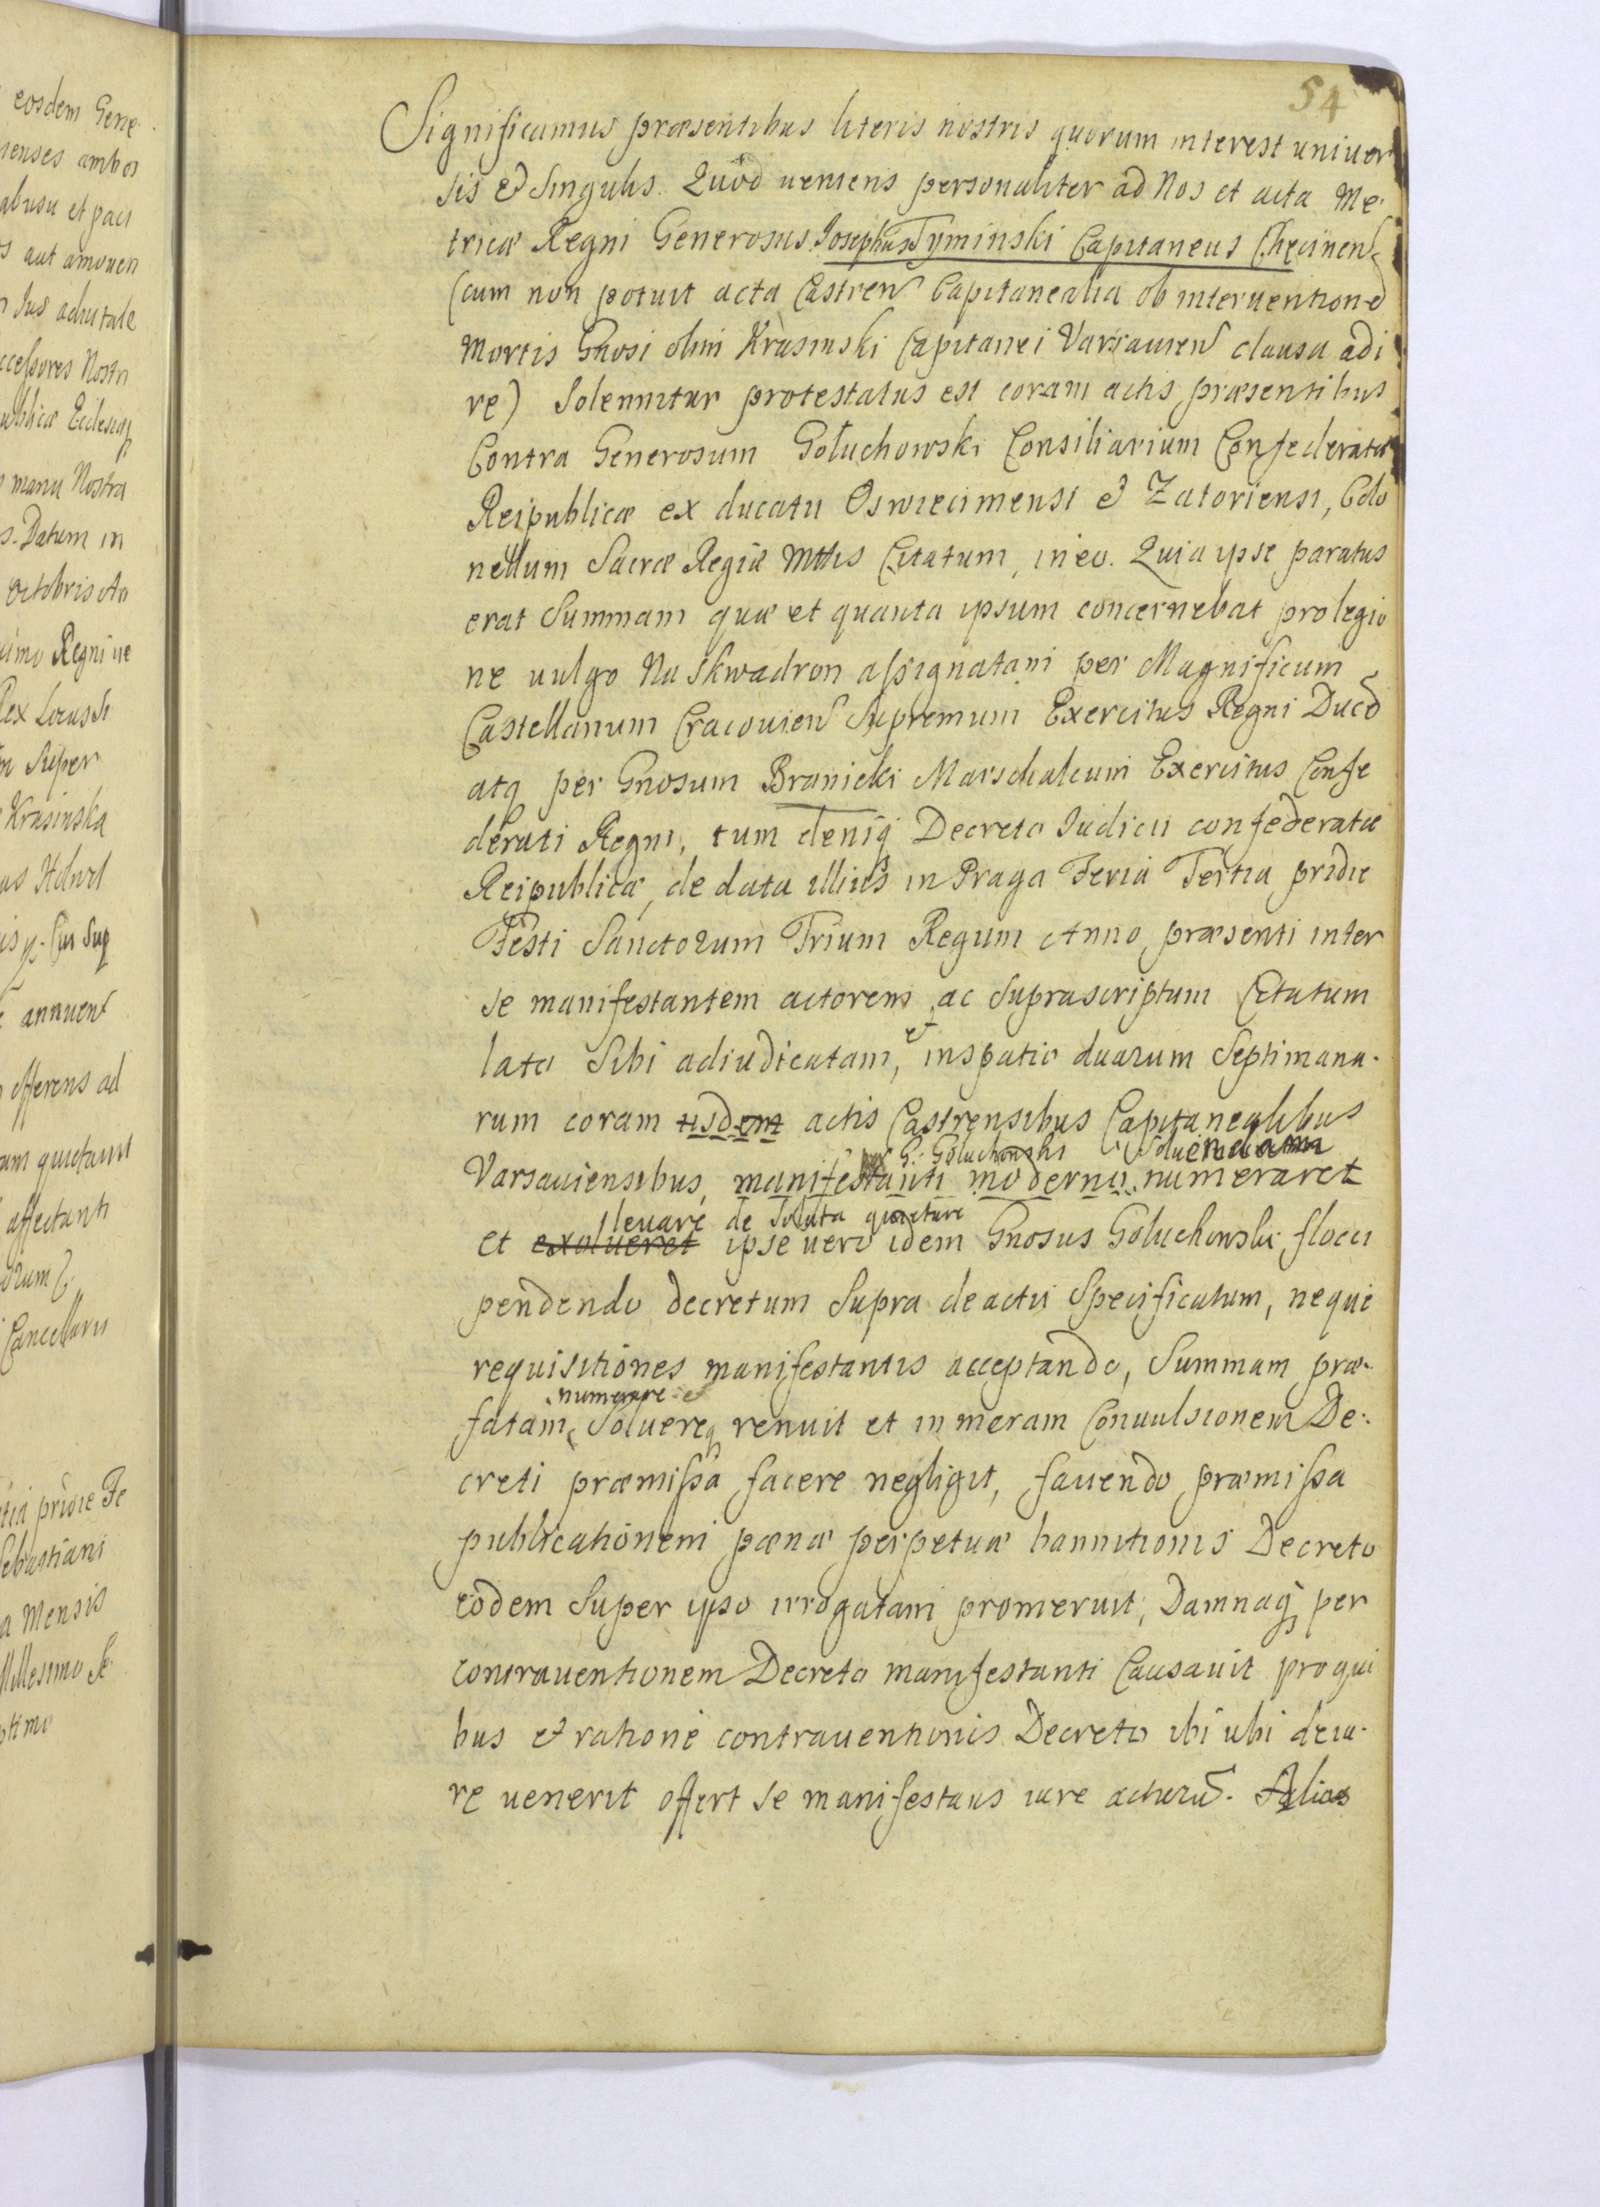 eosdem Gene
ienses ambos
abusu et paci
s aut amouen
Ius aduitale
ccessores Nostri
ublicæ Ecclesiaq
manu Nostra
s. Datum in
Octobris An
uimo Regni ue
Rex Locus Si
m Super
Krasinska
annuent
offerens ad
am quietauit
affectanti
orum
Cancellarii
tia pridie Fe
Sebastiani
a Mensis
Millesimo Se
ptimo
54
Significamus præsentibus literis nostris quorum interest uniuer
sis & Singulis. Quod ueniens personaliter ad Nos et acta Me
tricæ Regni Generosus Josephus Tyminski Capitaneus Checinen
(cum non potuit acta Castren Capitanealia ob interuentione
Mortis Gnosi olim Krasinski Capitanei Varsauien clausa adi
re) Solenniter protestatus est coram actis præsentibus
Contra Generosum Gołuchowski Consiliarium Confederatæ
Reipublicæ ex ducatu Oswiecimensi & Zatoriensi, Colo
nellum Sacræ Regiæ Mttis Citatum, in eo. Quia ipse paratus
erat Summam quæ et quanta ipsum concernebat pro legio
ne uulgo Na Skwadron assignatam per Magnificum
Castellanum Cracouien Supremum Exercitus Regni Duce
atq per Gnosum Branicki Marschalcum Exercitus Confe
derati Regni, tum deniq Decreto Iudicii confederatæ
Reipublicæ, de data illius in Praga Feria Tertia pridie
Festi Sanctorum Trium Regum Anno præsenti inter
se manifestantem actorem ac Suprascriptum Citatum
lato Sibi adiudicatam, et in spatio duarum Septimana
rum coram iisdem actis Castrensibus Capitanealibus
per G. Goluchowski Soluendam
Varsauiensibus, manifestanti moderno numeraret
leuare de Soluta quietare
et exolueret ipse uero idem Gnosus Goluchowski flocci
pendendo decretum Supra de actu Specificatum, neque
requisitiones manifestantis acceptando, Summam præ
numerare et
fatam Soluereq renuit et in meram Conuulsionem De
creti præmissa facere negligit, fauendo præmissa
publicationem pænæ perpetuæ bannitionis Decreto
eodem Super ipso irrogatam promeruit, Damnaq per
contrauentionem Decreto manifestanti Causauit pro qui
bus et ratione contrauentionis Decreto ibi ubi de iu
re uenerit offert se manifestans iure acturu. Alias